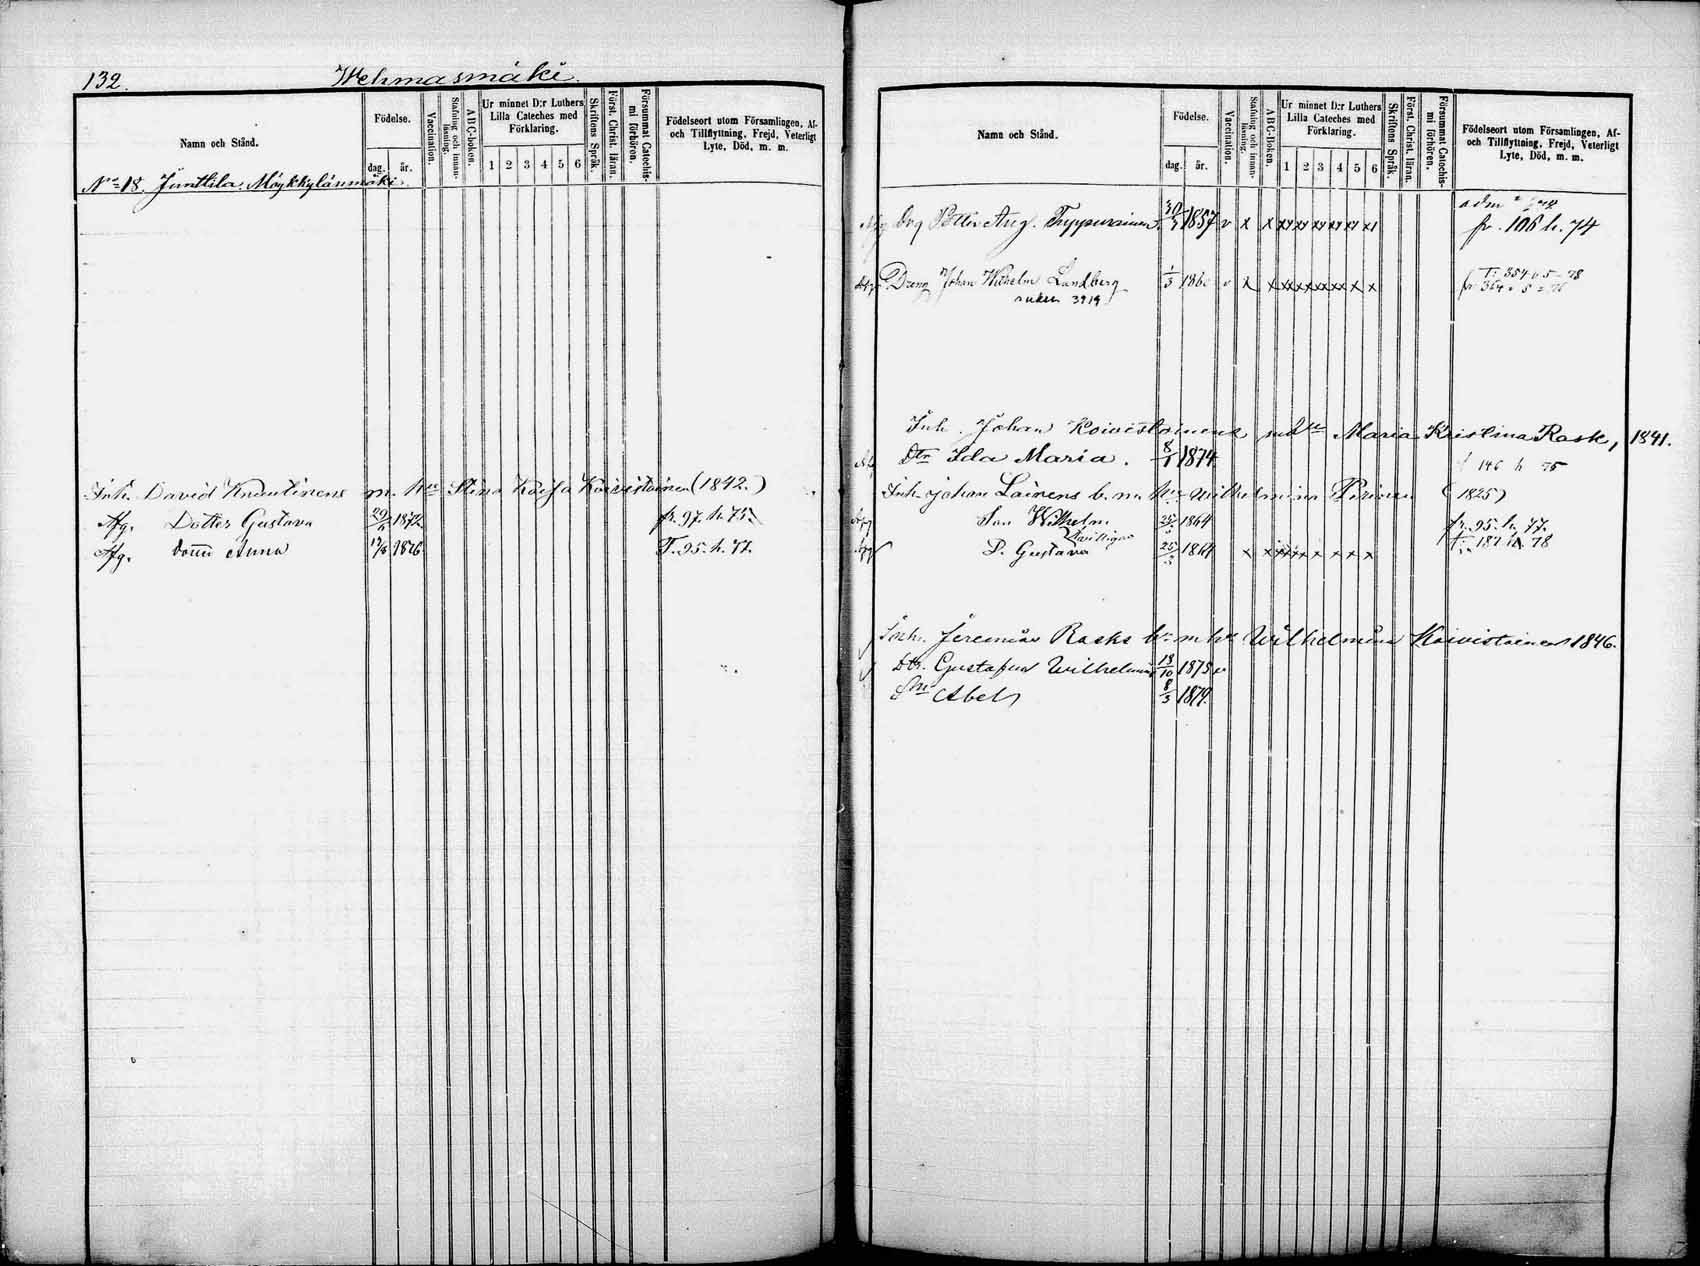 132.
Wehmasmäki.
Namn och Stånd.
Födelse.
dag. år.
Vaccination.
Stafning och innanläsning.
ABC-boken.
Ur minnet D:r Luthers Lilla Cateches med Förklaring.
1 2 3 4 5 6
Skriftens Språk.
Först. Christ. läran.
Försummat Catechismi förhören.
Födelseort utom Församlingen, Af- och Tillflyttning, Frejd, Veterligt Lyte, Död, m. m.
No 18. Junttila. Möykkylänmäki.
Inh. David Knuutinens m. hu Stina Kaisa Koivistoinen (1842.)
Afg. Dotter Gustava 1872 fr. 97. h. 75.
Afg. Anna 1876 T. 95. h. 77.
Namn och Stånd.
Födelse.
dag. år.
Vaccination.
Stafning och innanläsning.
ABC-boken.
Ur minnet D:r Luthers Lilla Cateches med Förklaring.
1 2 3 4 5 6
Skriftens Språk.
Först. Christ. läran.
Försummat Catechismi förhören.
Födelseort utom Församlingen, Af- och Tillflyttning, Frejd, Veterligt Lyte, Död, m. m.
Drg Petter Aug. Teppurainen 1857 v x x x x x x x x fr. 106 h. 74
Dreng Johan Wilhelm Landberg 1/3 v x x x x x x x x
Inh. Johan Koivistoinens Maria Kristina Rask, 1841.
Dtr Ida Maria. 8/1 1874 146 h 75
Inh. Johan Lairens Wilhelmina Piironen (1825)
Son Wilhelm 1864 fr. 95. h. 77.
D. Gustava 1864 x x x x x x x x
Inh. Jeremias Rasks hu Wilhelmina Koivistoinen 1846.
Dtr. Gustafva Wilhelmina 18/10 1875 v
Sn Abel 8/3 1879.